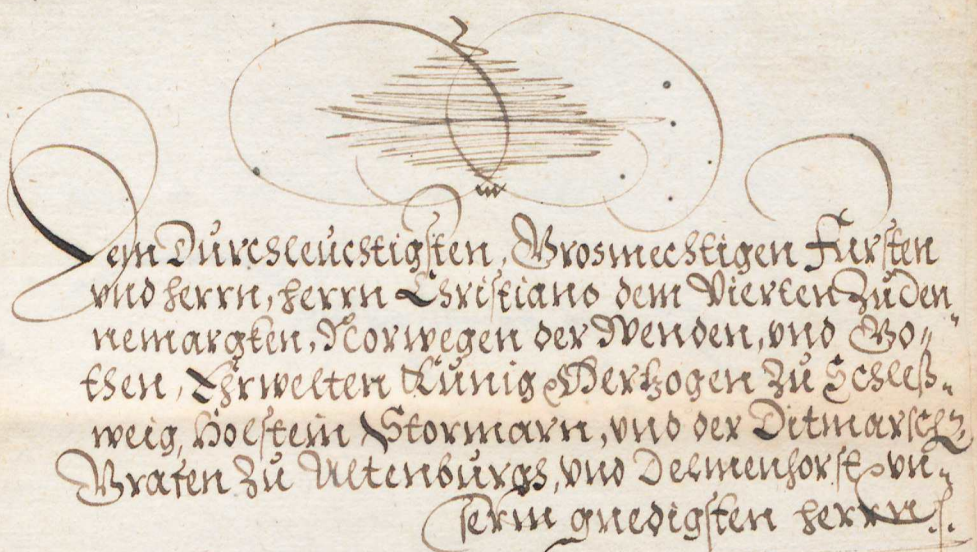 Dem Durchleuchtigsten, Grosmechtigen Fursten
vnd herrn, herrn Christiano dem Vierten Zu Den„
nemargken, Norwegen der Wenden, vnd Go„
then, Ehrwelten Künig, Hertzogen Zu Schleß„
weig, Holstein Stormarn, vnd der Ditmarsch,
Grafen Zu Altenburgh, vnd Delmenhorst, vn„
serm gnedigsten herrn.